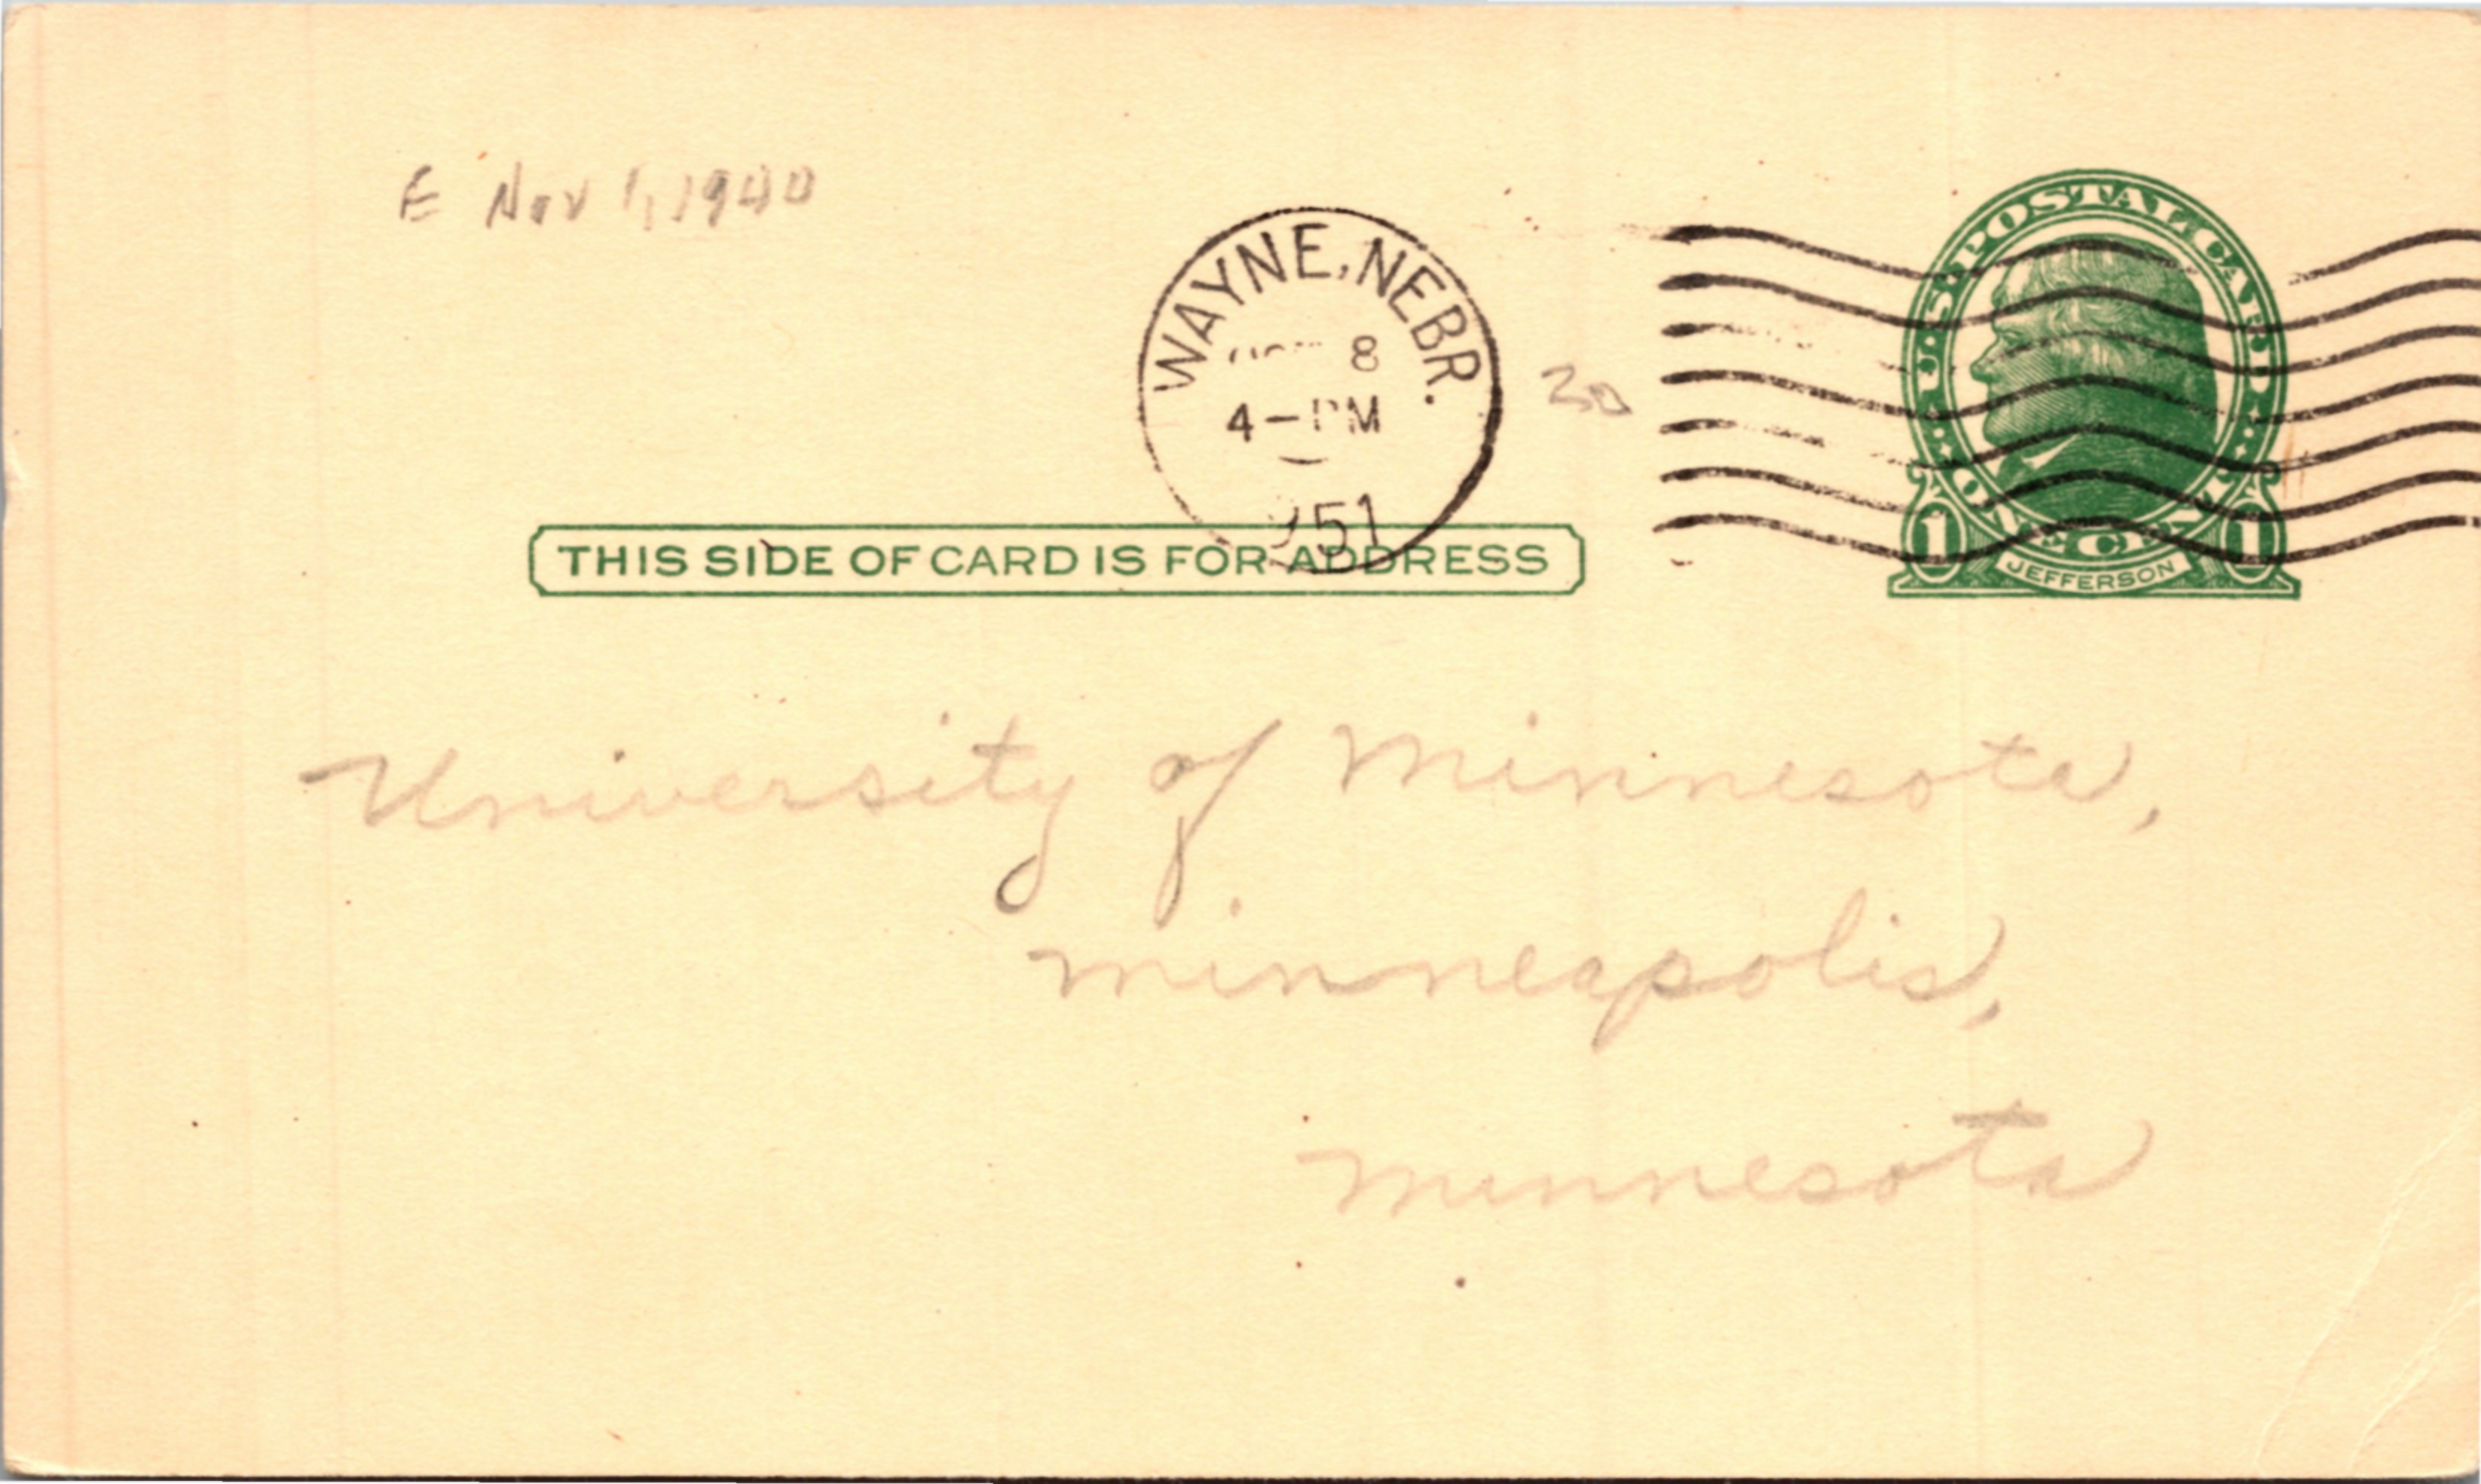 E Nov 1, 1940
WAYNE, NEBR.
8
4-PM
1951
30
U·S·POSTAL CARD
ONE CENT
1 1
JEFFERSON
THIS SIDE OF CARD IS FOR ADDRESS
University of Minnesota,
Minneapolis,
Minnesota